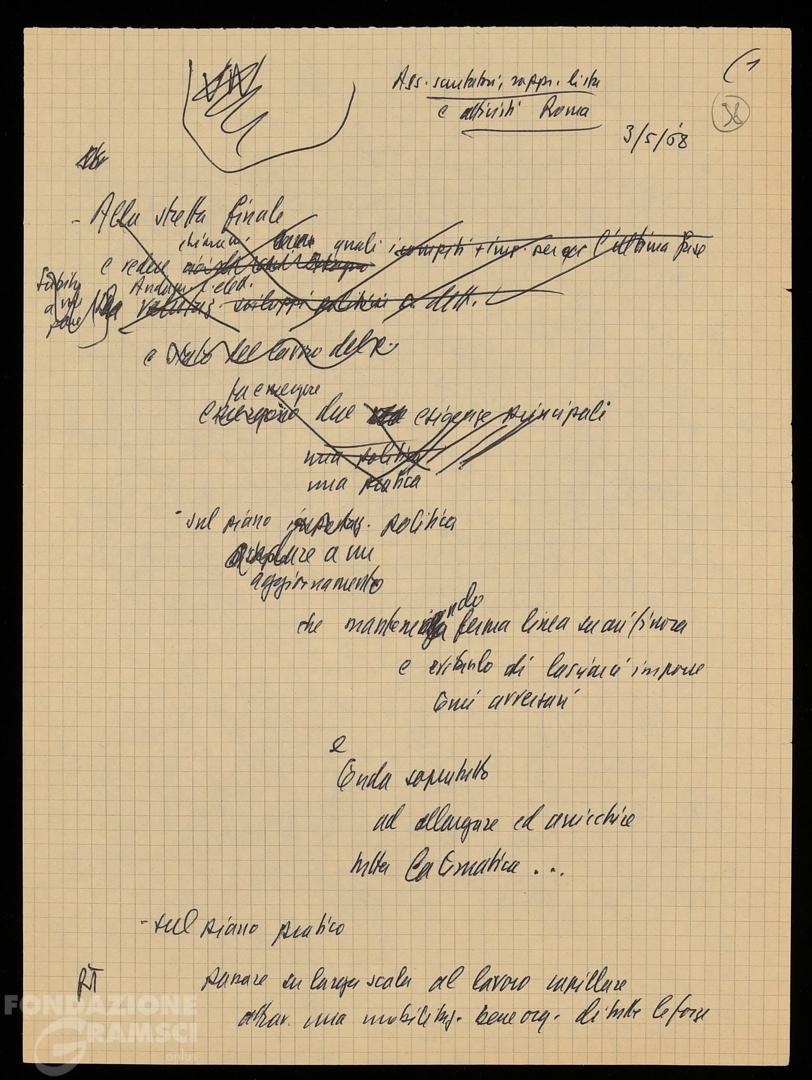 (1
Ass. scrutatori, rappr. lista
e attivisti Roma
38
3/5/68
- Alla stretta finale
chiarire quali compiti si per l'ultima fase
e vedere
Andam. elett.
valutaz. sviluppi politici e
Subito
e stato del lavoro del P.
fa emergere
emergono due esigenze principali
una politica
una pratica
- sul piano politica
a un
aggiornamento
che mantenendo ferma linea finora
e evitando di lasciarci imporre
temi avversari
e
tenda soprattutto
ad allargare ed arricchire
tutta la tematica ...
- sul piano pratico
RT passare su larga scala al lavoro capillare
attrav. una mobilitaz. bene org. di tutte le forze
FONDAZIONE
GRAMSCI
onlus